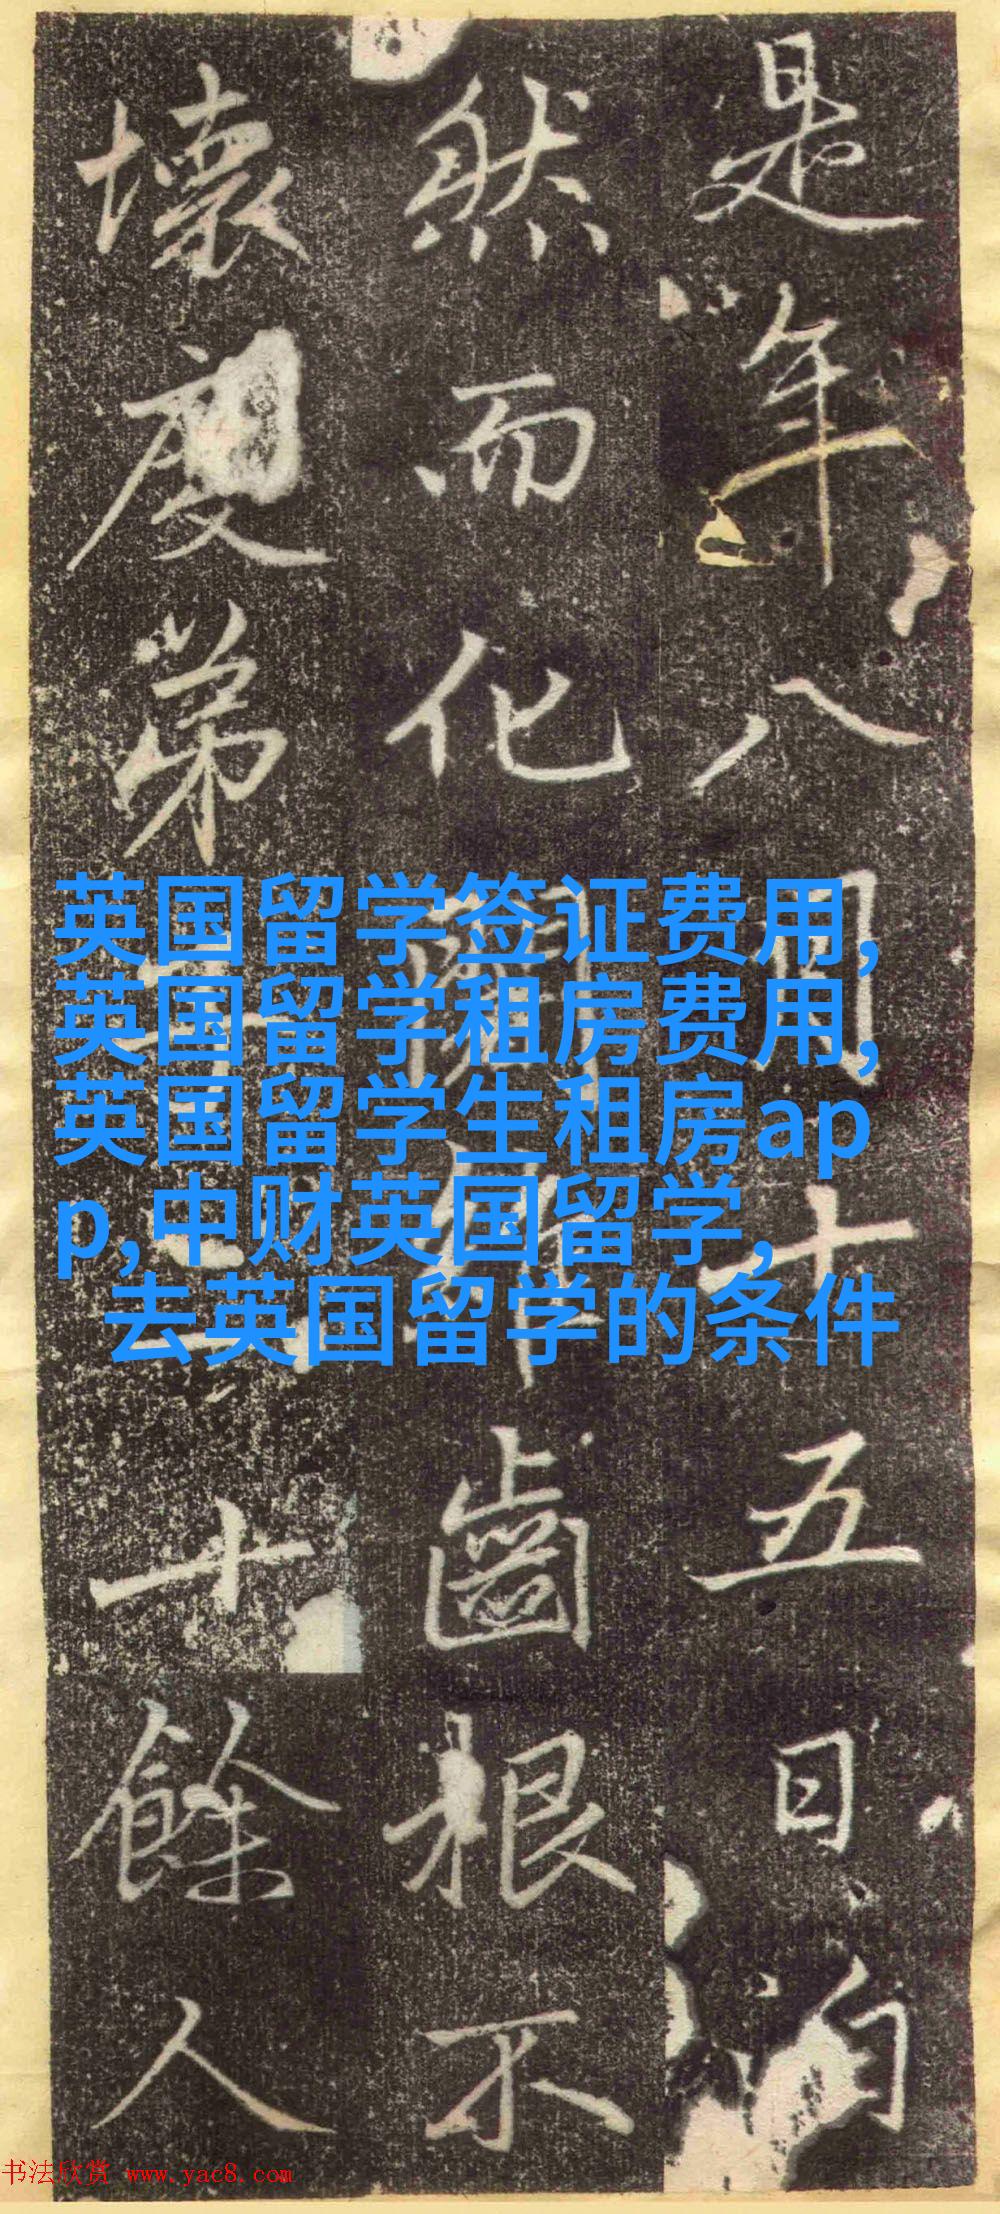 是年八月十五日自
然而化齒根不
壞度弟十餘人
英国留学签证费用,
英国留学租房费用,
英国留学生租房ap
p,中财英国留学,
去英国留学的条件
书法欣赏 www.yac8.com